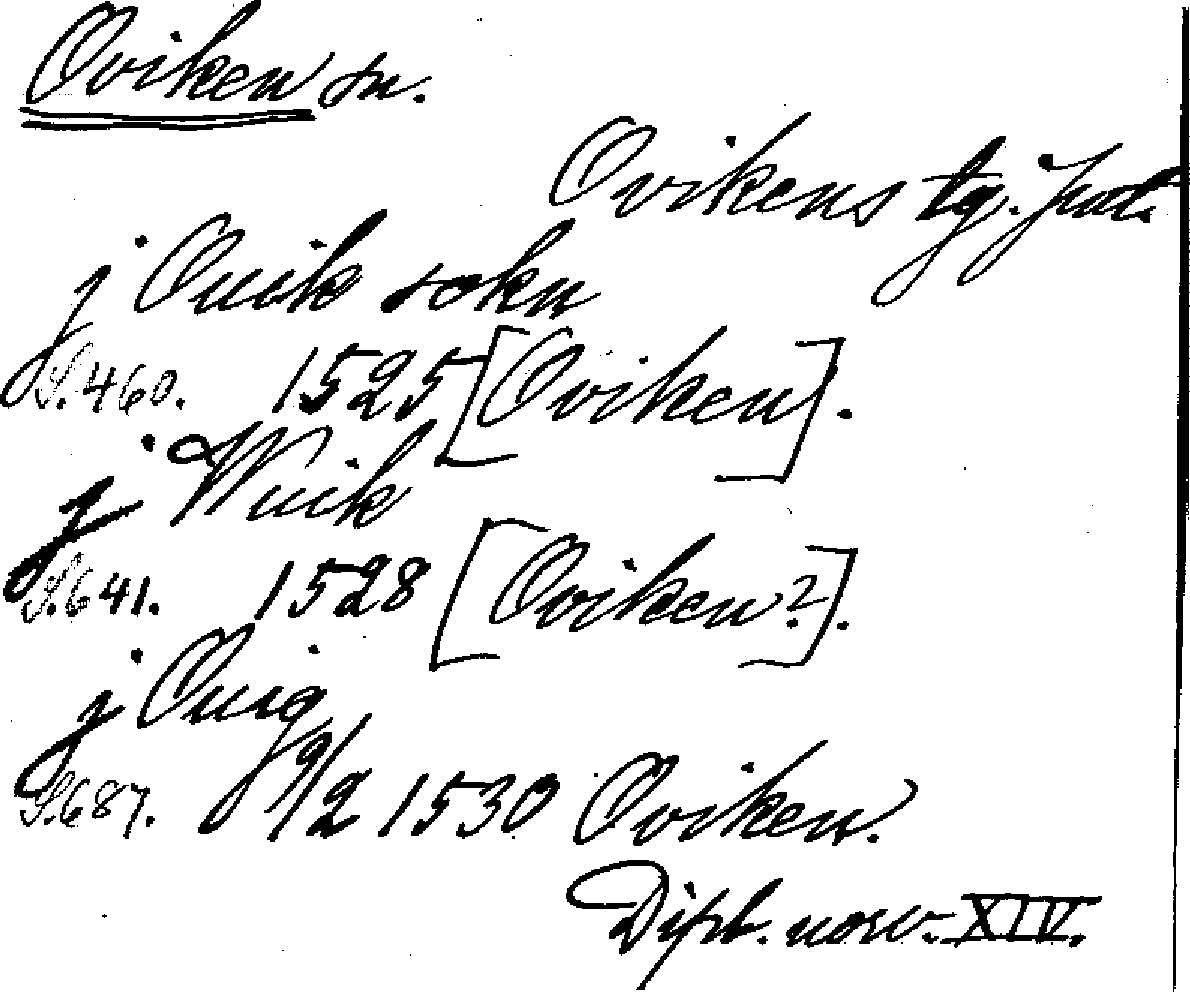 Oviken sn.
Ovikens tg. Jmtl.
j Ouik sokn
S. 460. 1525 [Oviken].
j Wuik
S. 641. 1528 [Oviken?].
j Ouig
S. 687. 9/2 1530 Oviken.
Dipl. norv. XIV.